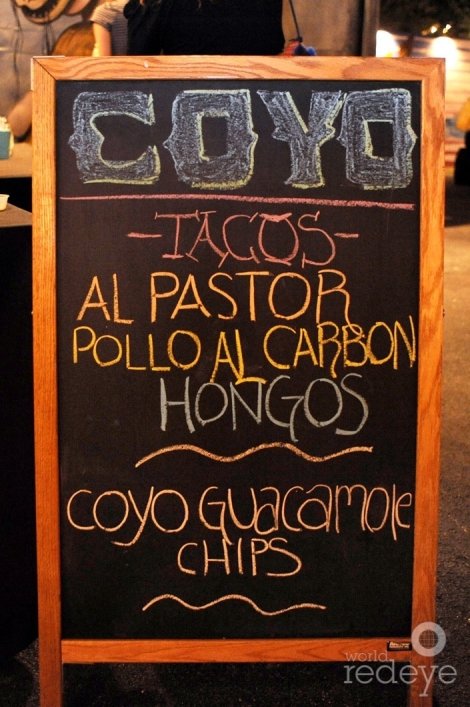 COYO
-TACOS-
AL PASTOR
POLLO AL CARBON
HONGOS
COYO GUACAMOLE
CHIPS
world
redeye